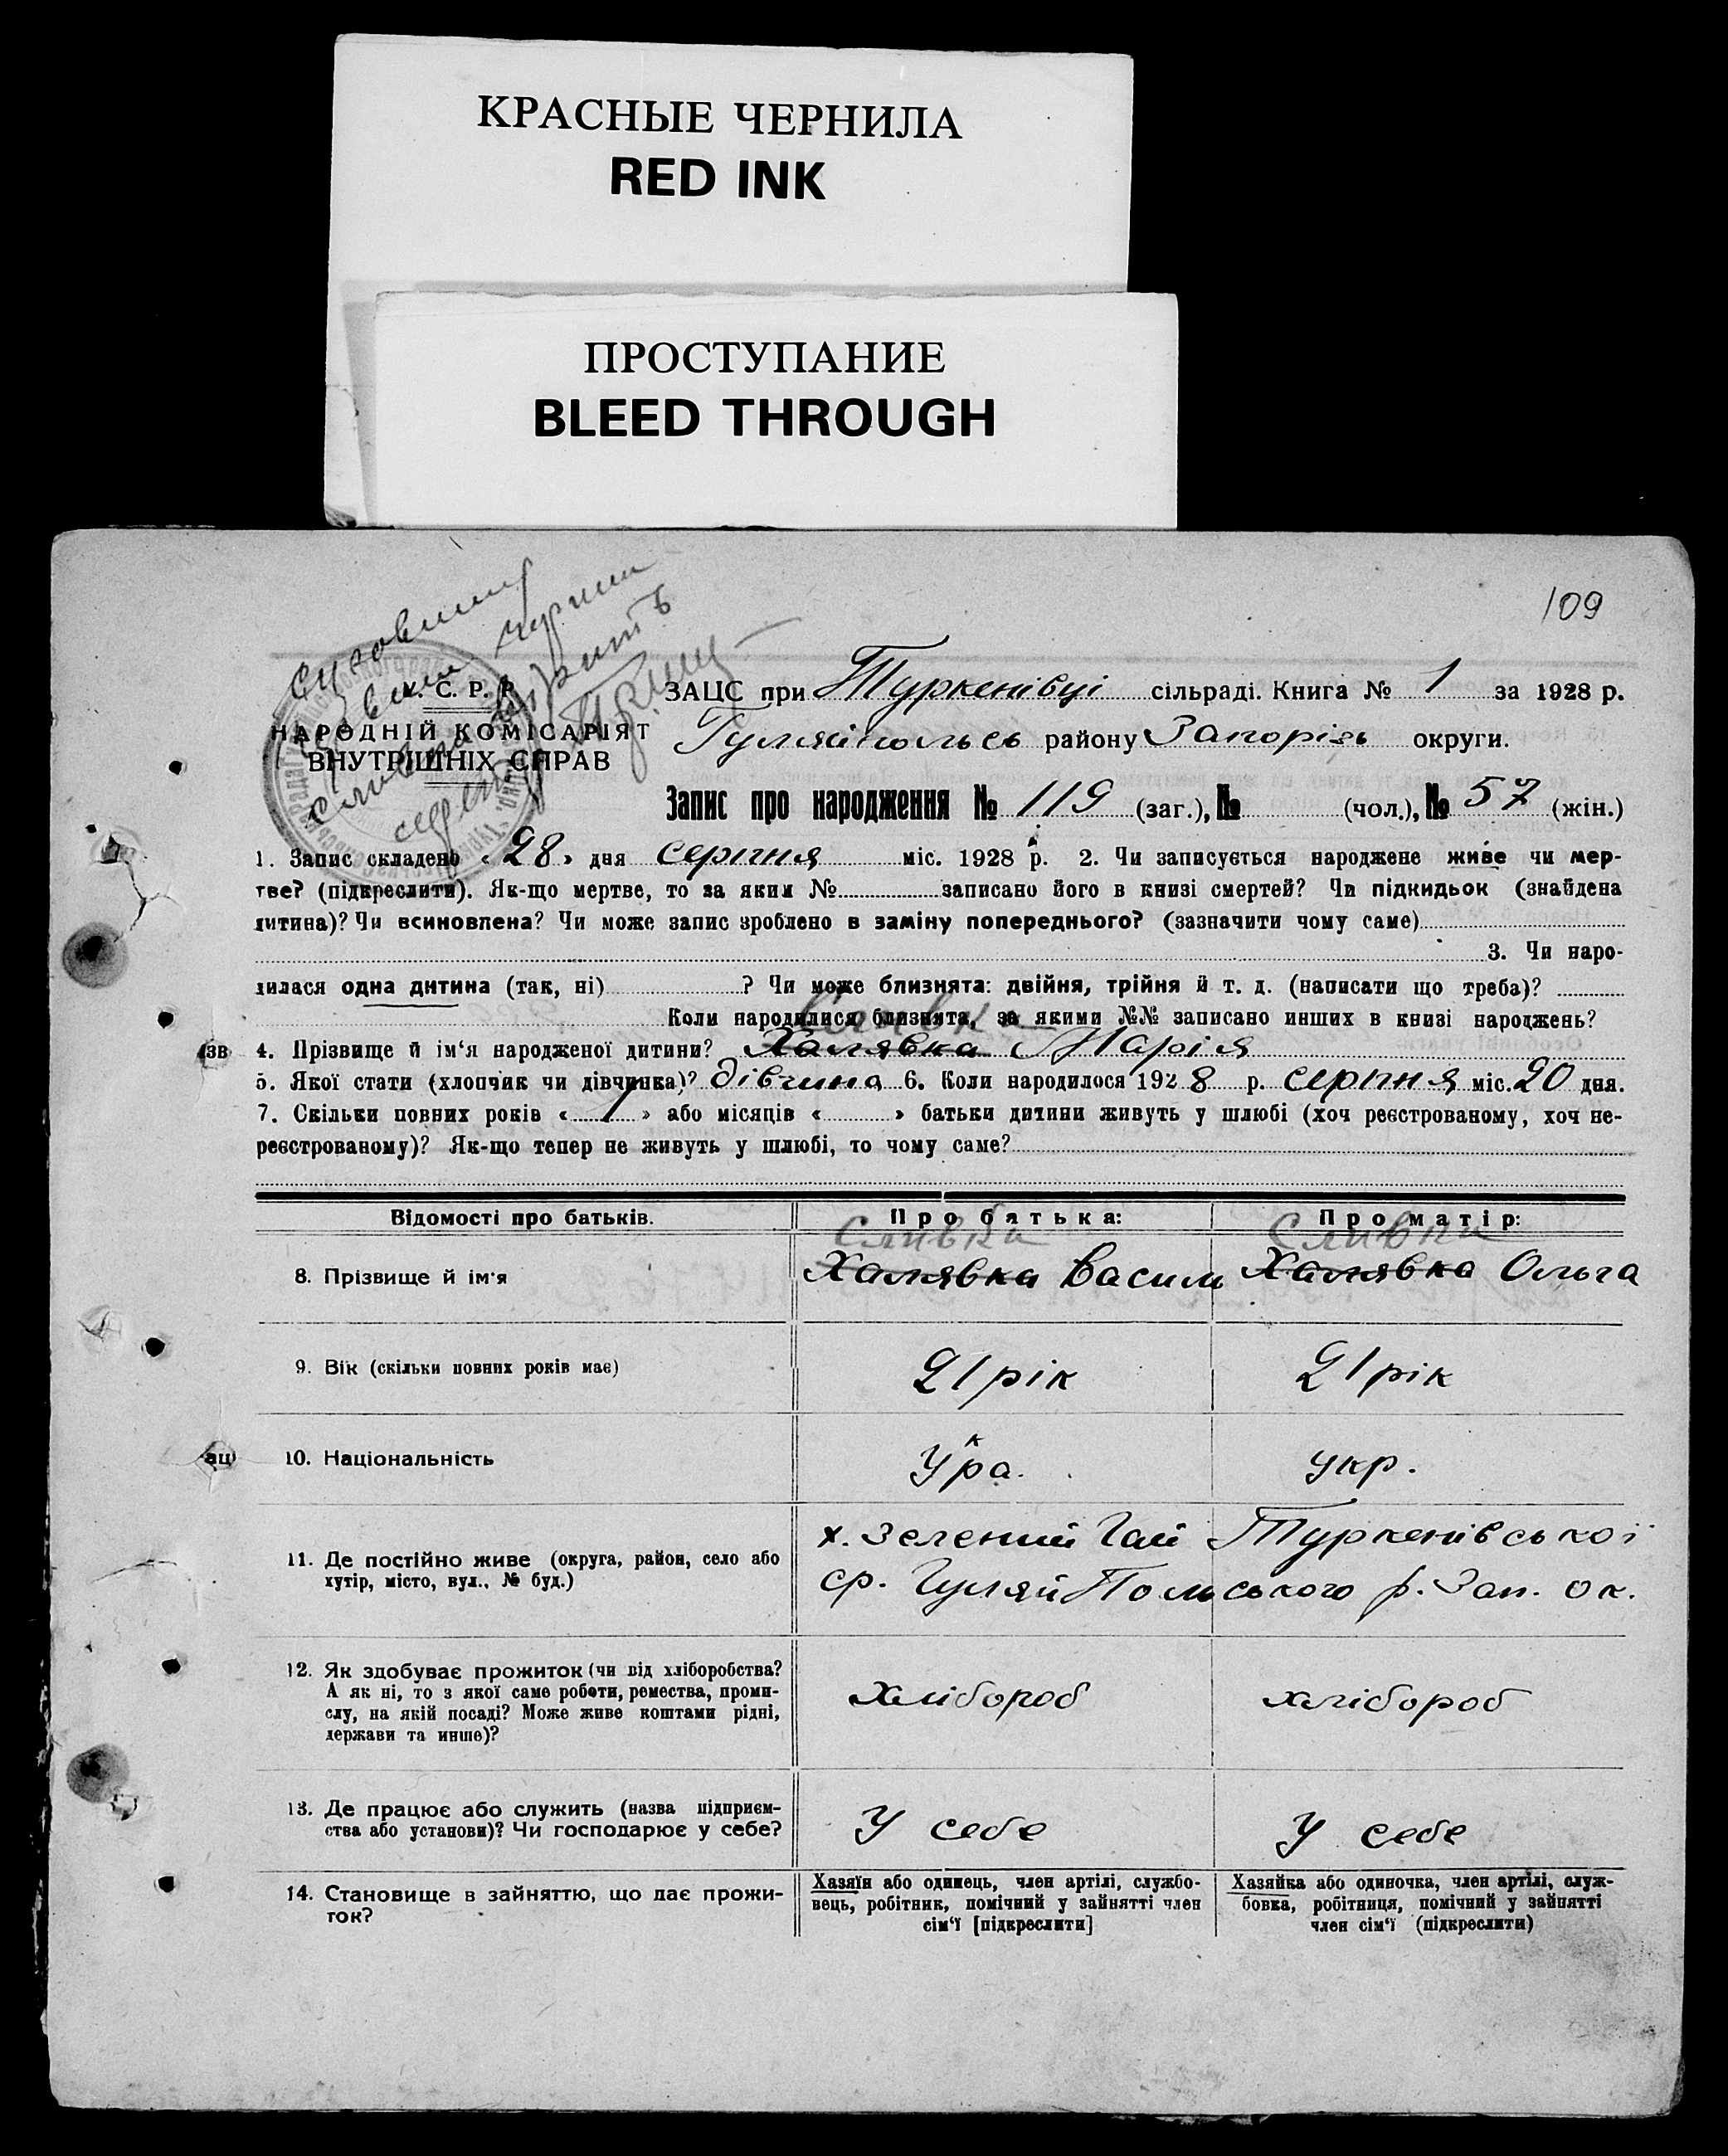 КРАСНЫЕ ЧЕРНИЛА
RED INK
ПРОСТУПАНИЕ
BLEED THROUGH
109
У. С. Р. Р.
НАРОДНІЙ КОМІСАРІЯТ
ВНУТРІШНІХ СПРАВ
ЗАЦС при Туркенівці сільраді. Книга № 1 за 1928 р.
Гуляйпольсь району Запорізь округи.
Запис про народження № 119 (заг.), № (чол.), № 57 (жін.)
1. Запис складено «28» дня серпня міс. 1928 р. 2. Чи записується народжене живе чи мер-
тве? (підкреслити). Як-що мертве, то за яким № записано його в книзі смертей? Чи підкидьок (знайдена
дитина)? Чи всиновлена? Чи може запис зроблено в заміну попереднього? (зазначити чому саме)
3. Чи наро-
дилася одна дитина (так, ні) ? Чи може близнята: двійня, трійня й т. д. (написати що треба)?
Коли народилися близнята, за якими №№ записано инших в книзі народжень?
Сливка
4. Прізвище й ім'я народженої дитини? Халявка Марія
5. Якої стати (хлопчик чи дівчинка)? дівчина 6. Коли народилося 1928 р. серпня міс. 20 дня.
7. Скільки повних років «1» або місяців « » батьки дитини живуть у шлюбі (хоч реєстрованому, хоч не-
реєстрованому)? Як-що тепер не живуть у шлюбі, то чому саме?
Відомості про батьків. Про батька: Про матір:
Сливка Сливка
8. Прізвище й ім'я Халявка Васил Халявка Ольга
9. Вік (скільки повних років має) 21 рік 21 рік
10. Національність Укра. укр.
11. Де постійно живе (округа, район, село або
хутір, місто, вул., № буд.)
х. Зелений Гай Туркенівської
ср. ГуляйПольського р. Зап. ок.
12. Як здобуває прожиток (чи від хліборобства?
А як ні, то з якої саме роботи, ремества, проми-
слу, на якій посаді? Може живе коштами рідні,
держави та инше)?
хлібороб хлібороб
13. Де працює або служить (назва підприєм-
ства або установи)? Чи господарює у себе?
У себе У себе
14. Становище в зайняттю, що дає прожи-
ток?
Хазяїн або одинець, член артілі, службо-
вець, робітник, помічний у зайнятті член
сім'ї [підкреслити]
Хазяйка або одиночка, член артілі, служ-
бовка, робітниця, помічний у зайнятті
член сім'ї (підкреслити)